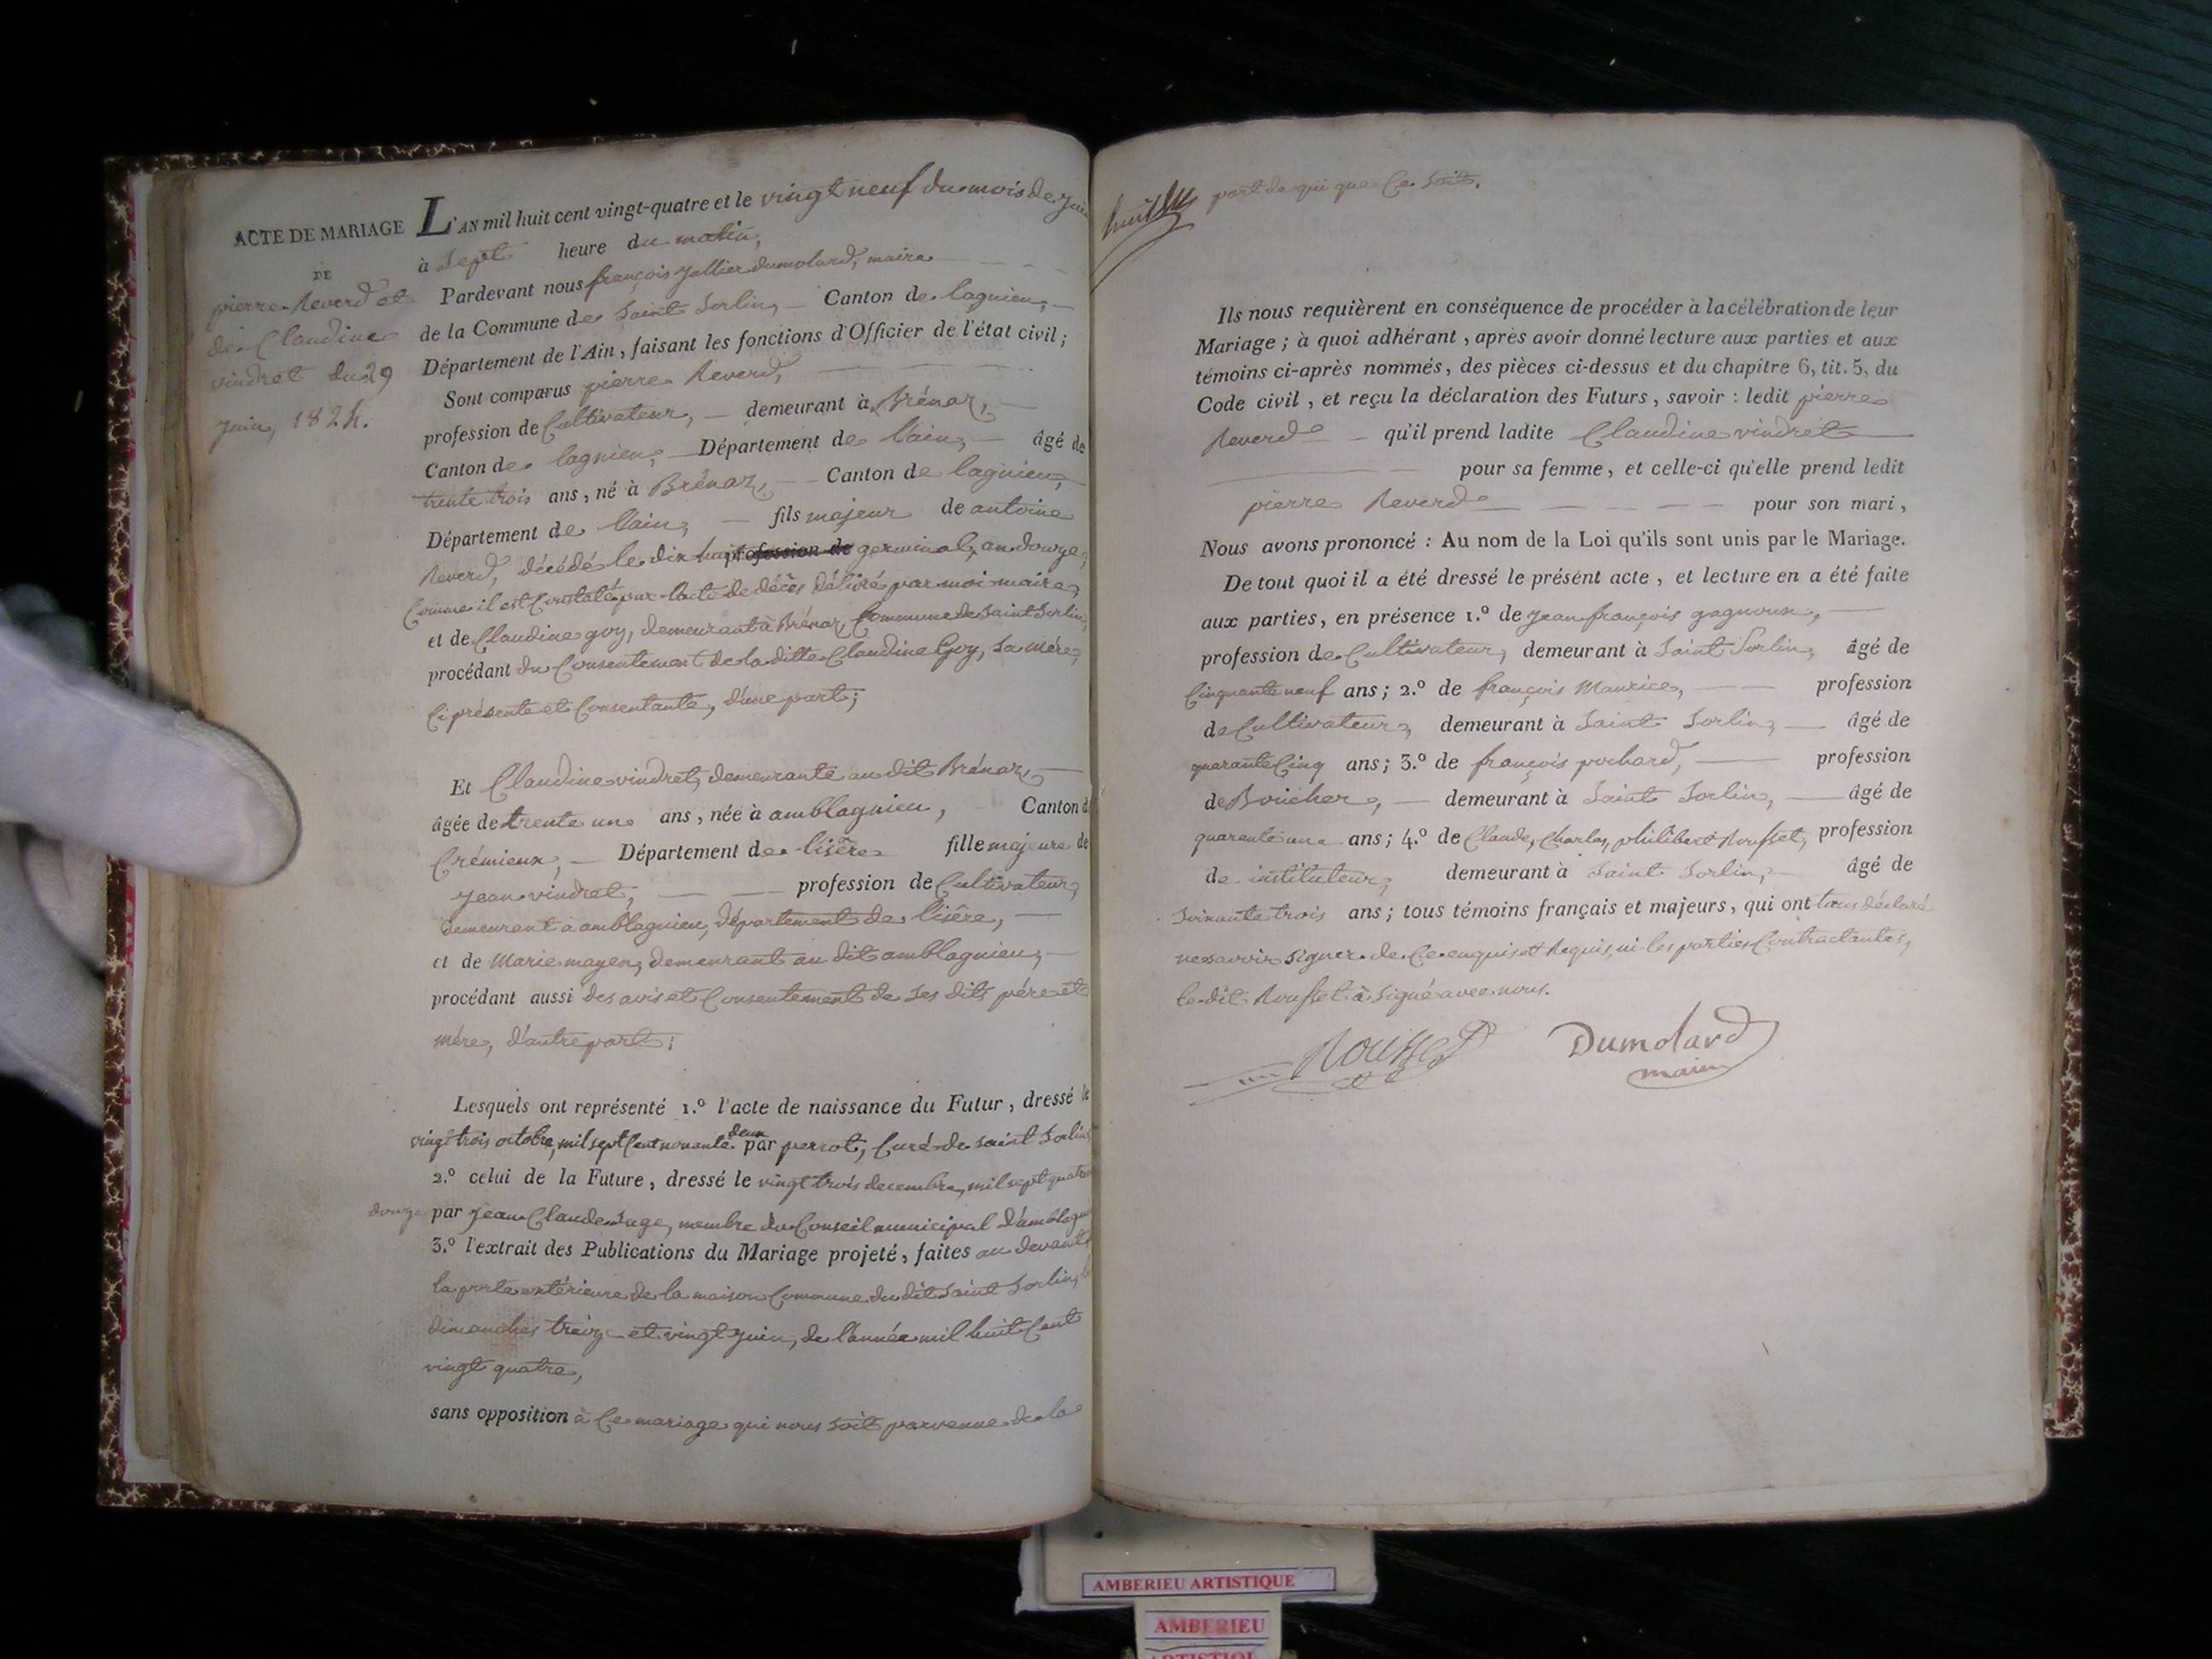 ACTE DE MARIAGE
DE
pierre Reverd et
de Claudine
vindret du 29
Juin, 1824.
L'AN mil huit cent vingt-quatre et le vingt neuf du mois de Juin
à Sept heure du matin,
Pardevant nous françois Jallier dumolard, maire
de la Commune de Saint Sorlin, Canton de lagnieu,
Département de l'Ain, faisant les fonctions d'Officier de l'état civil;
Sont comparus pierre Reverd,
profession de Cultivateur, demeurant à Brénaz,
Canton de lagnieu, Département de l'ain, âgé de
trente trois ans, né à Brénaz, Canton de lagnieu,
Département de l'ain, fils majeur de antoine
Reverd, décédé le dix huit profession de germinal, an douze,
Comme il est Constaté par l'acte de décès délivré par moi maire,
et de Claudine goy, demeurant à Brénaz, Commune de Saint Sorlin,
procédant du Consentement de la ditte Claudine Goy, sa mère,
Ci présente et Consentante, d'une part;
Et Claudine vindret, demeurante au dit Brénaz,
âgée de trente une ans, née à amblagnieu, Canton d
Crémieux, Département de l'isère fille majeure de
Jean vindret, profession de Cultivateur,
demeurant à amblagnieu, département de l'isère,
et de Marie mayen, demeurant au dit amblagnieu,
procédant aussi des avis et Consentement de ses dits père et
mère, d'autre part;
Lesquels ont représenté 1.º l'acte de naissance du Futur, dressé le
vingt trois octobre, mil sept Cent nonante deux par perrot, Curé de saint Sorlin
2.º celui de la Future, dressé le vingt trois decembre, mil sept quatre
douze par Jean Claude Juge, membre du Conseil municipal d'amblagn
3.º l'extrait des Publications du Mariage projeté, faites au devant
la porte extérieure de la maison Commune du dit Saint Sorlin, le
dimanches treize et vingt Juin, de l'année mil huit Cent
vingt quatre,
sans opposition à Ce mariage qui nous soit parvenue de la
part de qui que Ce Soit.
Ils nous requièrent en conséquence de procéder à la célébration de leur
Mariage; à quoi adhérant, après avoir donné lecture aux parties et aux
témoins ci-après nommés, des pièces ci-dessus et du chapitre 6, tit. 5, du
Code civil, et reçu la déclaration des Futurs, savoir: ledit pierre
Reverd qu'il prend ladite Claudine vindret
pour sa femme, et celle-ci qu'elle prend ledit
pierre Reverd pour son mari,
Nous avons prononcé: Au nom de la Loi qu'ils sont unis par le Mariage.
De tout quoi il a été dressé le présent acte, et lecture en a été faite
aux parties, en présence 1.º de Jean françois gagnoux,
profession de Cultivateur, demeurant à Saint Sorlin, âgé de
Cinquante neuf ans; 2.º de françois Maurice, profession
de Cultivateur, demeurant à Saint Sorlin, âgé de
quarante Cinq ans; 3.º de françois pochard, profession
de Boucher, demeurant à Saint Sorlin, âgé de
quarente une ans; 4.º de Claude, Charles, philibert Rousset, profession
de instituteur, demeurant à Saint Sorlin, âgé de
soixante trois ans; tous témoins français et majeurs, qui ont tous déclaré
ne savoir signer de Ce enquis et Requis, ni les parties Contractantes,
le dit Rousset à signé avec nous.
Rousset
Dumolard
maire
AMBERIEU ARTISTIQUE
AMBERIEU
ARTISTIQUE